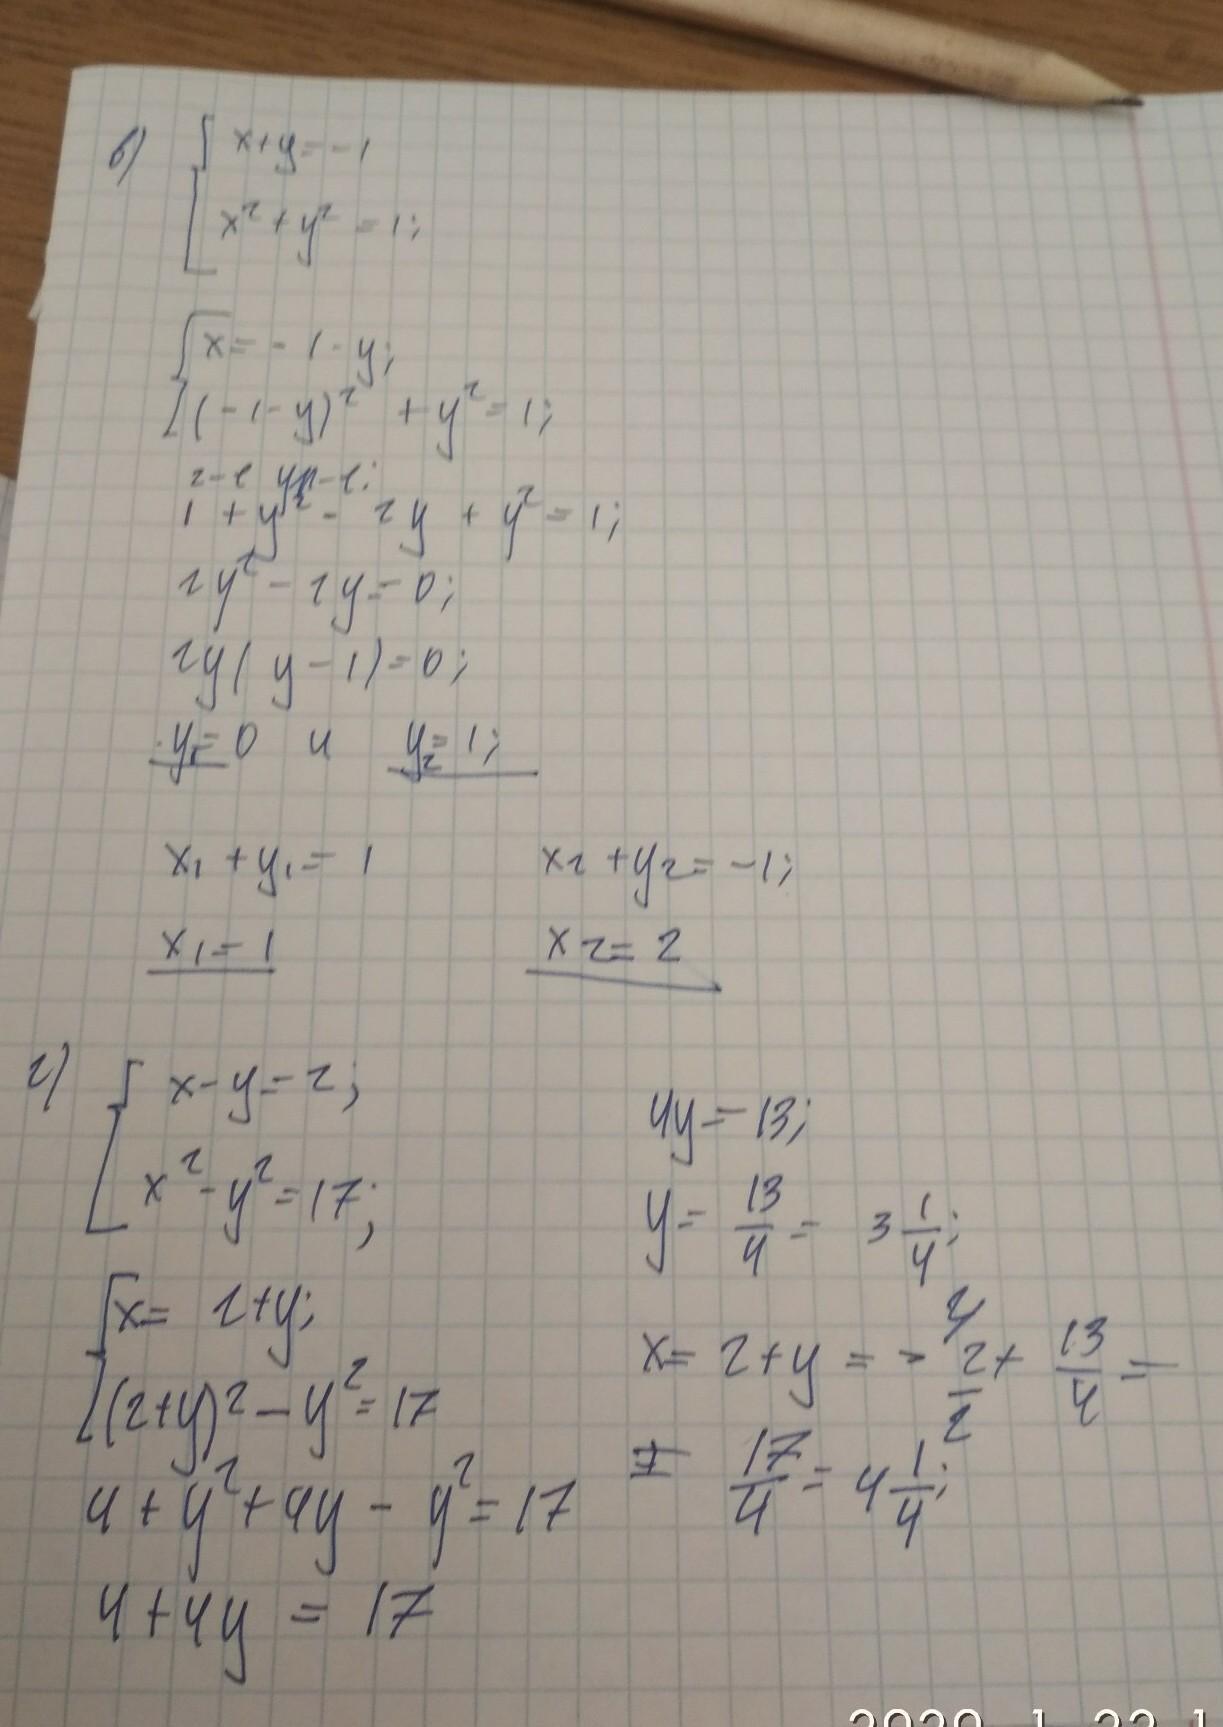 в) { x+y=-1
x²+y²=1;
{ x=-1-y;
(-1-y)²+y²=1;
1+y²-2y+y²=1;
2y²-2y=0;
2y(y-1)=0;
y₁=0 и y₂=1;
x₁+y₁=1 x₂+y₂=-1;
x₁=1 x₂=2
г) { x-y=2;
x²-y²=17;
{ x=2+y;
(2+y)²-y²=17
4+y²+4y-y²=17
4+4y=17
4y=13;
y=13/4=3 1/4;
x=2+y= 2/2+13/4=
17/4=4 1/4;